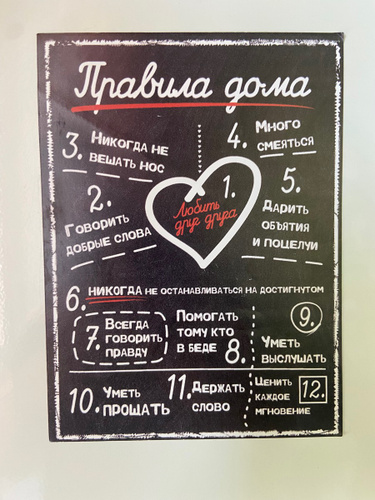 Правила дома
1.
Любить
друг друга
2.
Говорить
добрые слова
3. Никогда не
вешать нос
4. Много
смеяться
5.
Дарить
объятия
и поцелуи
6. никогда не останавливаться на достигнутом
7. Всегда
говорить
правду
Помогать
тому кто
в беде 8.
9.
Уметь
выслушать
10. Уметь
прощать
11. Держать
слово
Ценить
каждое 12.
мгновение